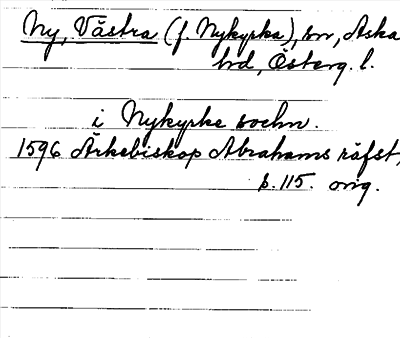 Ny, Västra (f. Nykyrka), sn, Aska
hd, Österg. l.
i Nykyrke sochn.
1596 Ärkebiskop Abrahams räfst,
s. 115. orig.